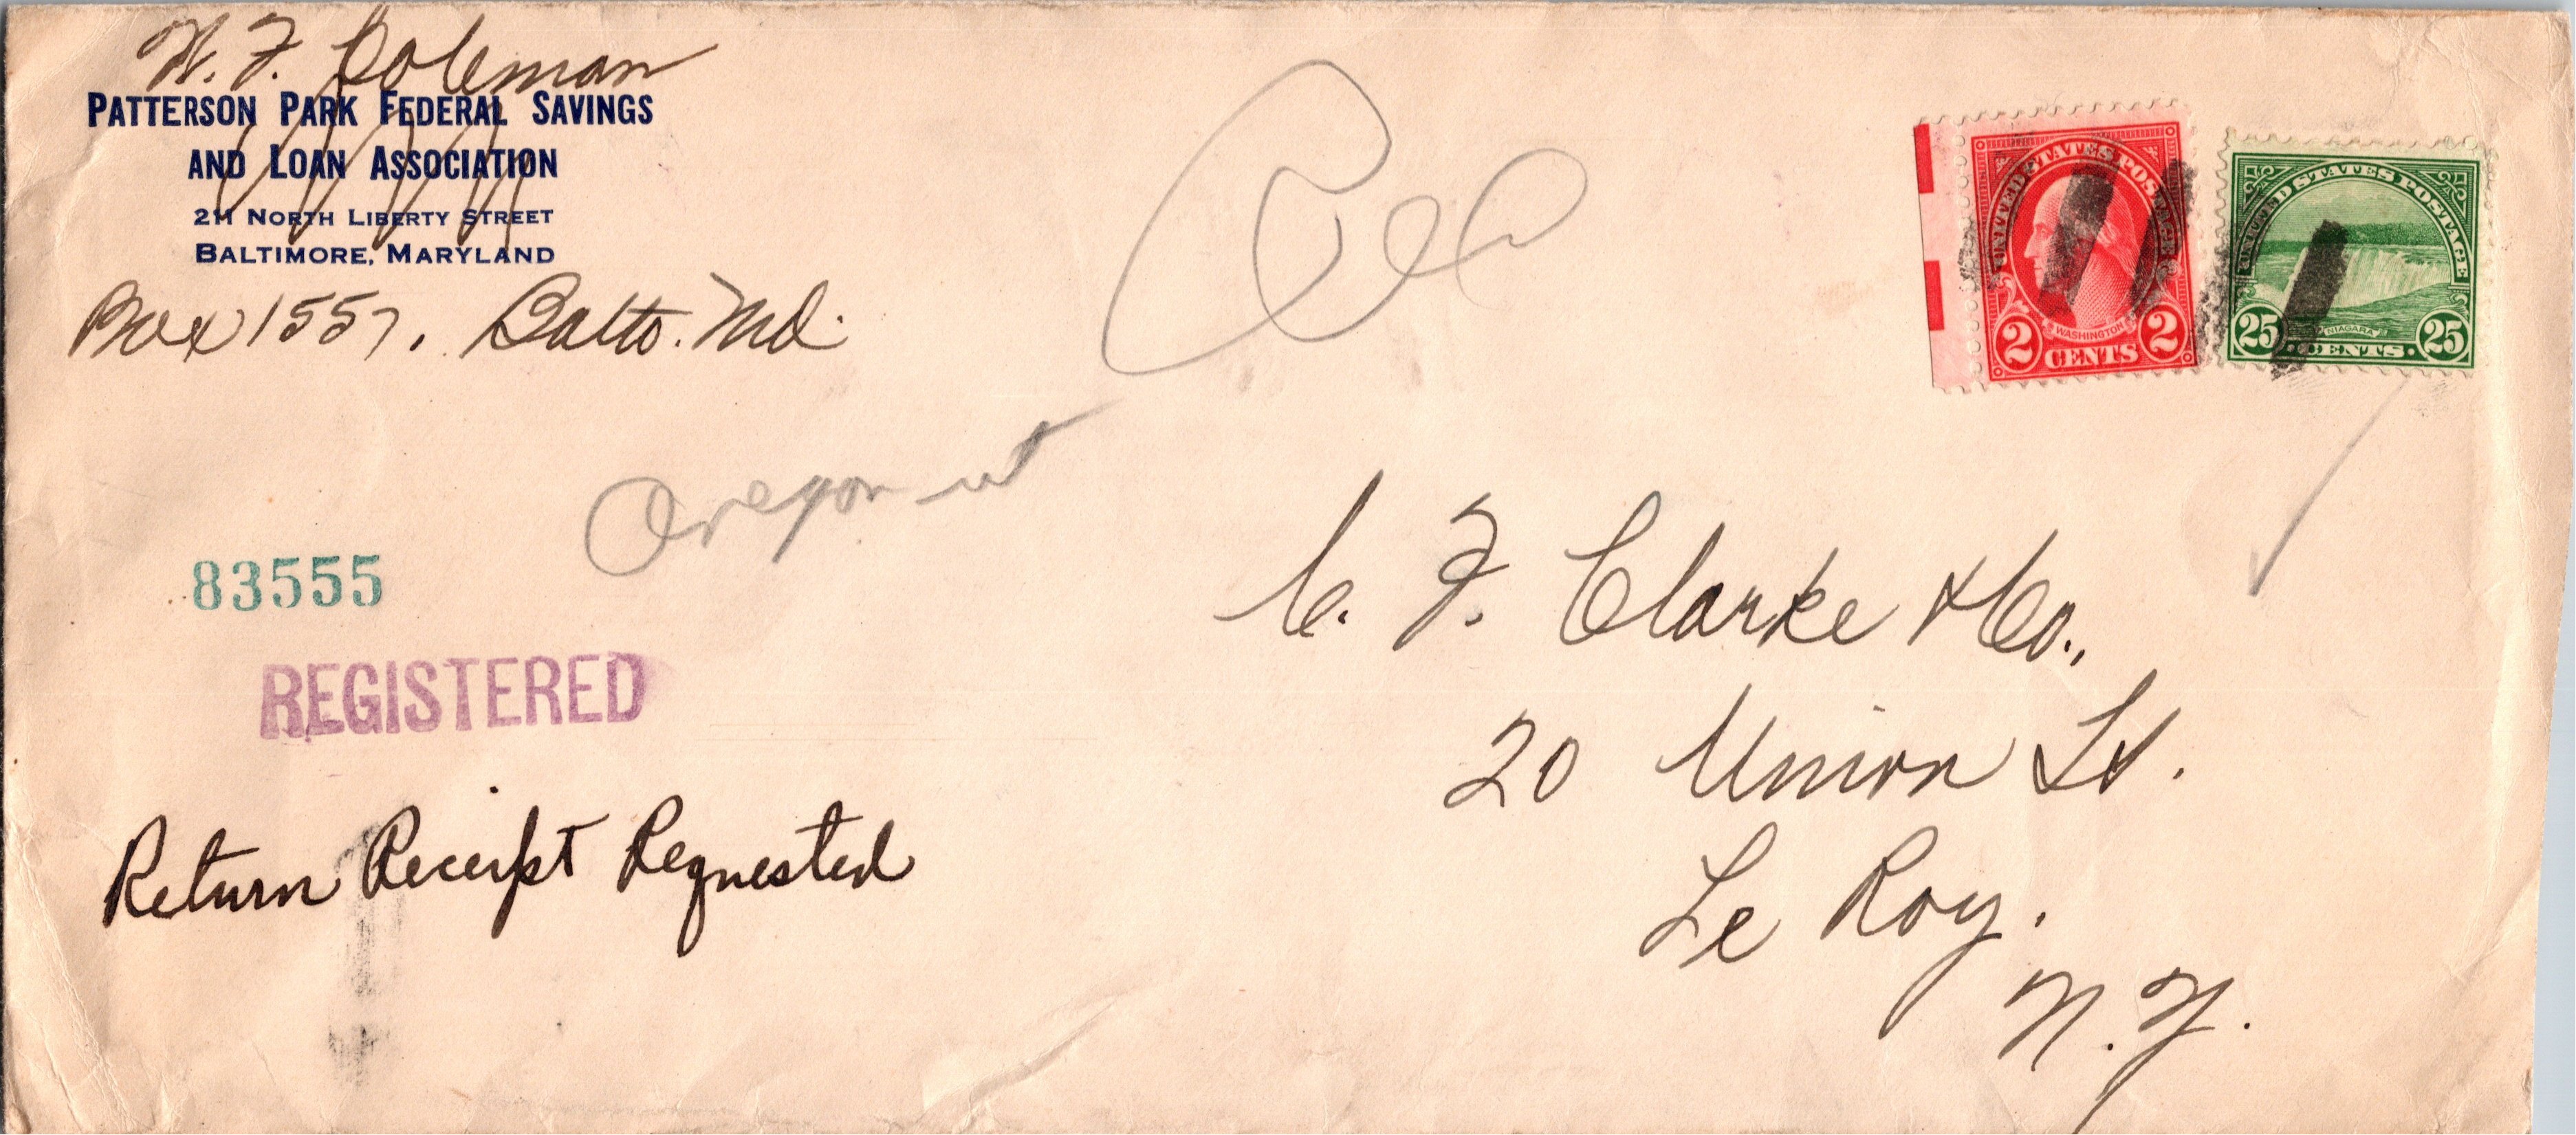 W. F. Coleman
PATTERSON PARK FEDERAL SAVINGS
AND LOAN ASSOCIATION
211 NORTH LIBERTY STREET
BALTIMORE, MARYLAND
Box 1557, Balto. Md.
UNITED STATES POSTAGE
WASHINGTON
2 CENTS 2
UNITED STATES POSTAGE
NIAGARA
25 CENTS 25
Oregon
83555
REGISTERED
Return Receipt Requested
C. F. Clarke & Co.,
20 Union St.
Le Roy.
N. Y.